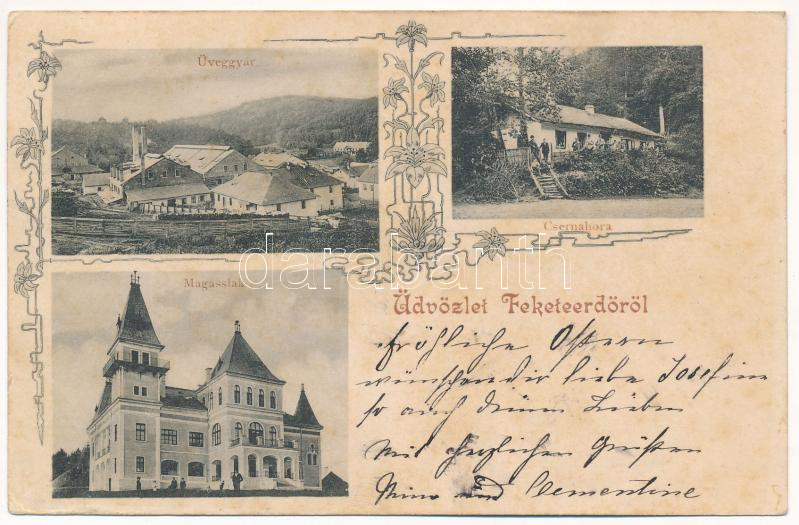 Üveggyár
Csernahora
Magasslak
darabanth
Üdvözlet Feketeerdőről
Fröhliche Ostern
wünschen dir liebe Josefine
so auch deinen Lieben
Mit herzlichen Grüßen
Mina und Clementine